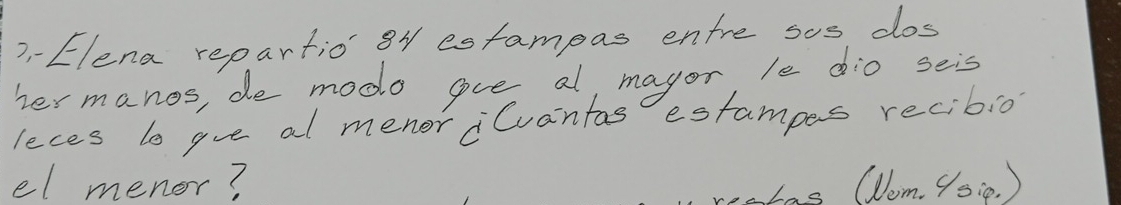 2,- Elena repartió 84 estampas entre sus dos
hermanos, de modo que al mayor le dio seis
veces lo que al menor ¿Cuántas estampas recibió
el menor?
y restas (Num. y sig.)